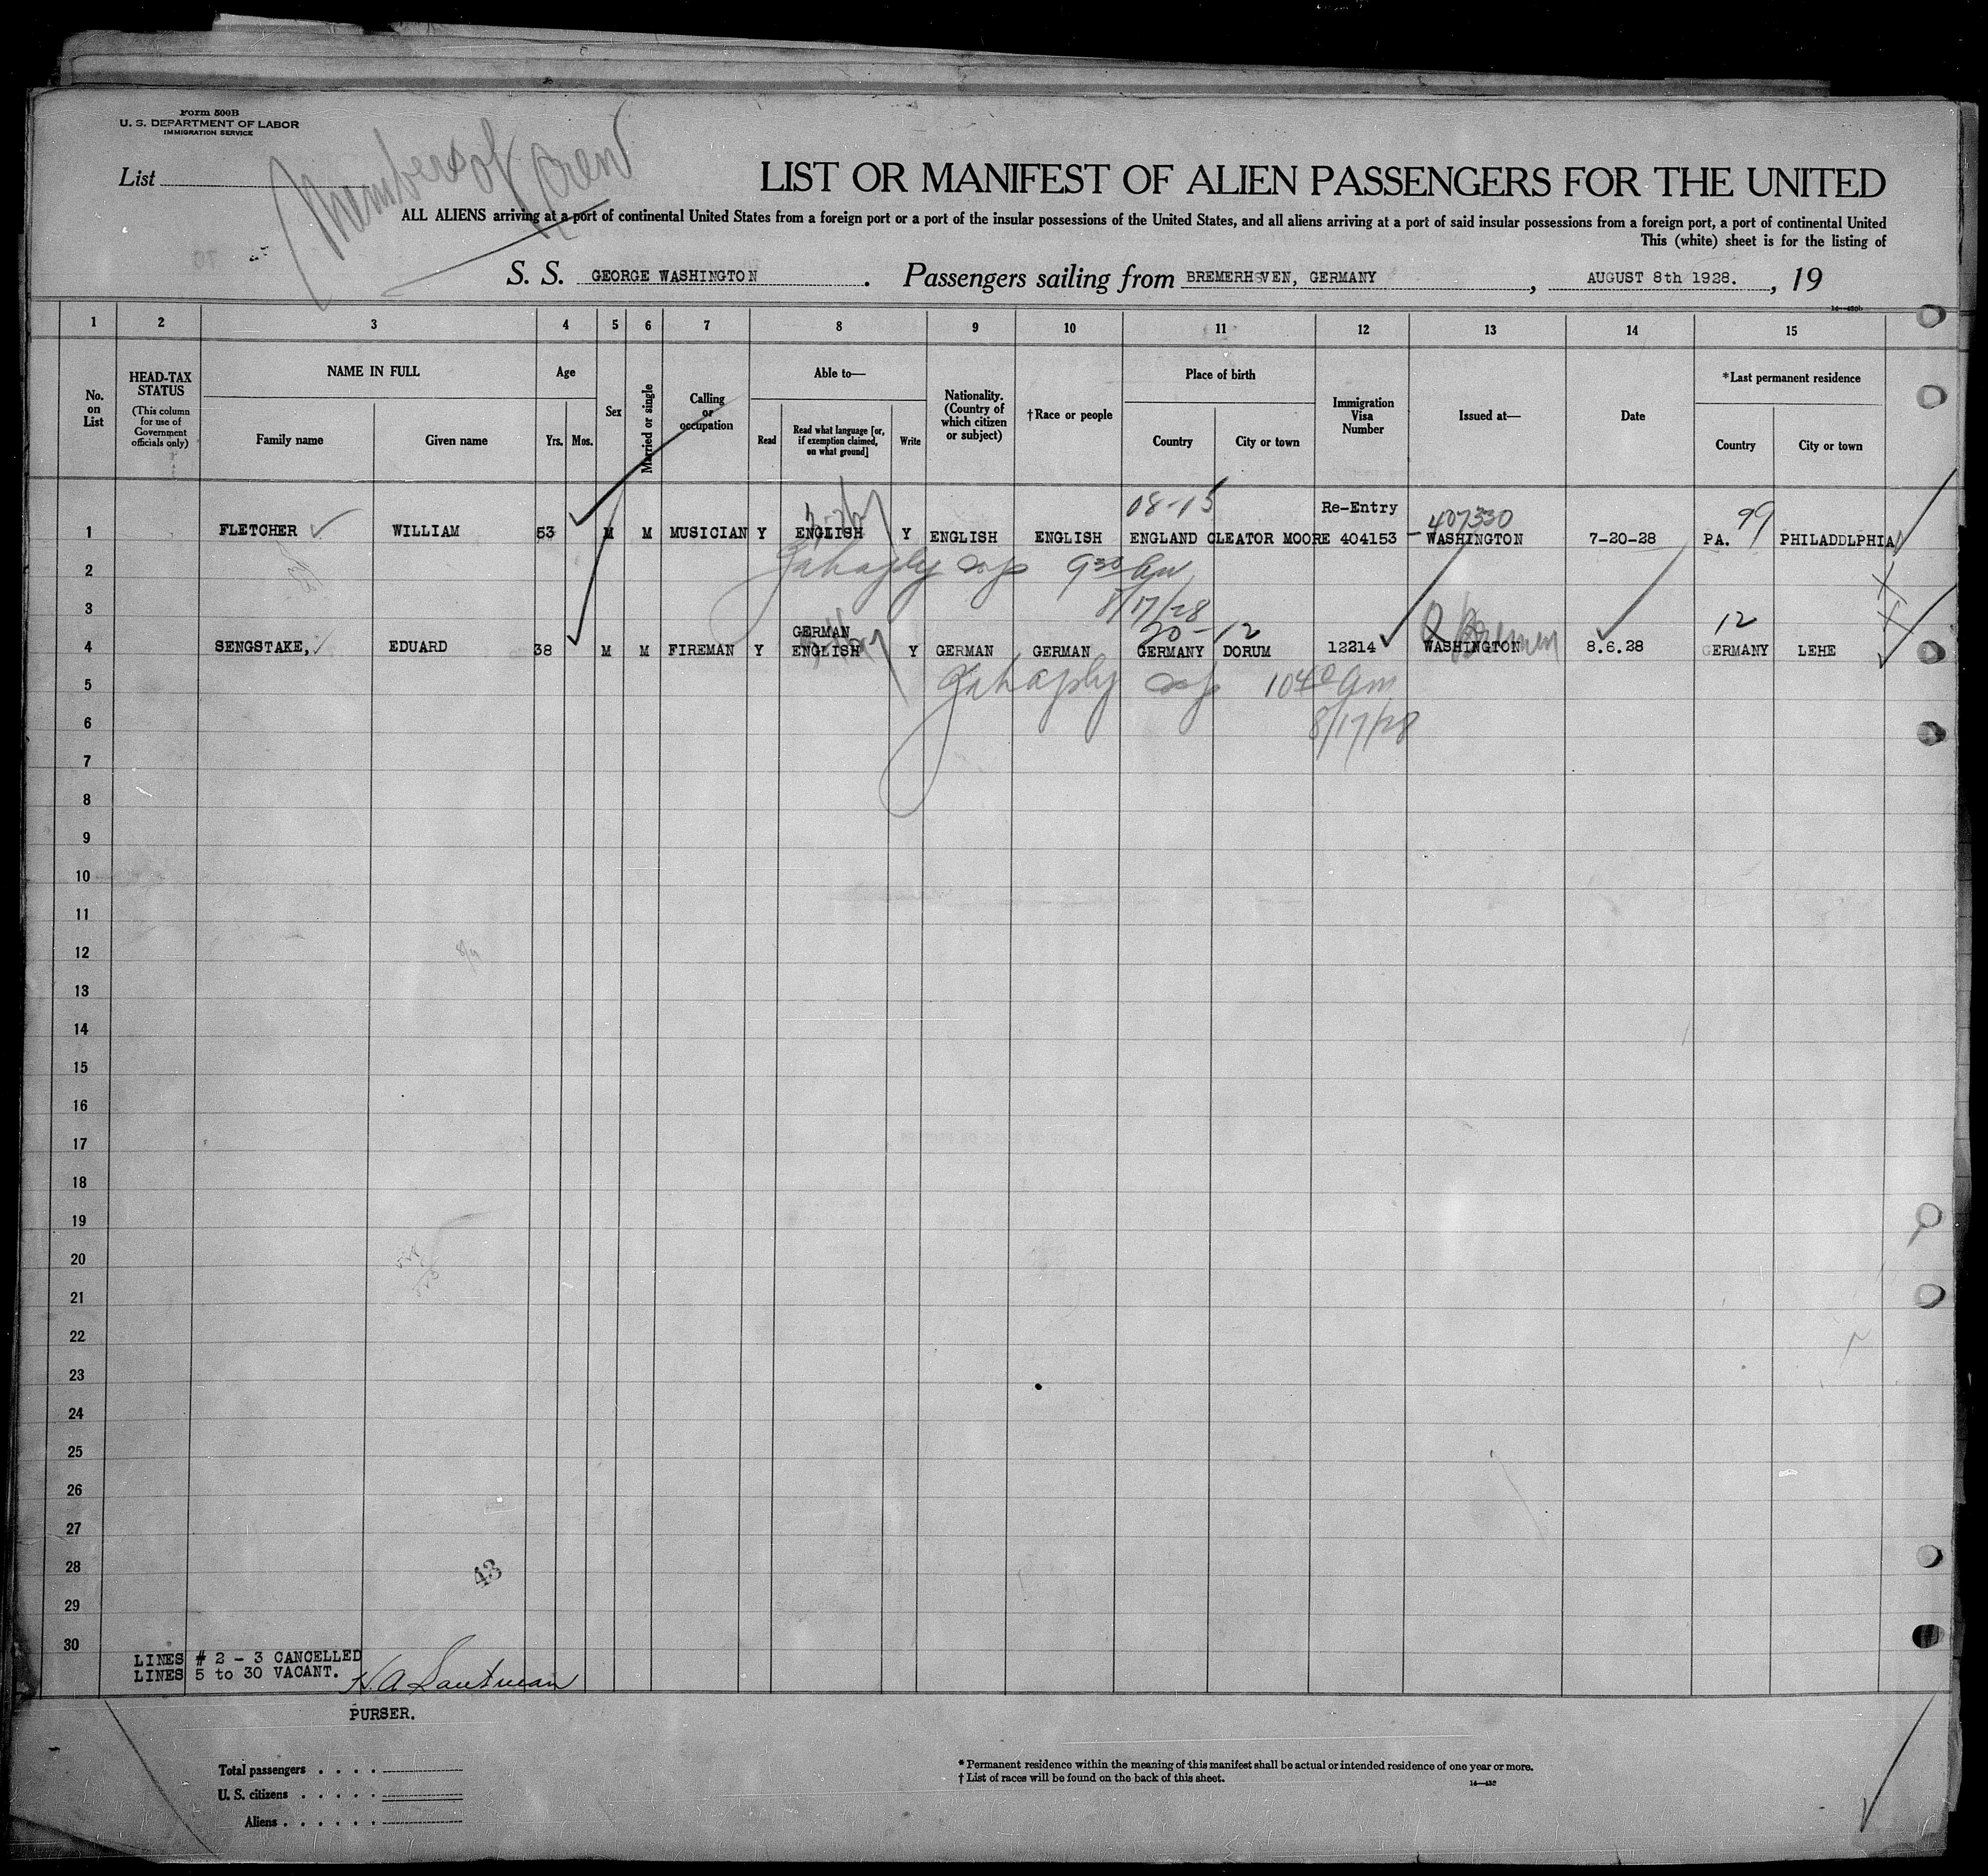 Form 500B
U. S. DEPARTMENT OF LABOR
IMMIGRATION SERVICE
List
Members of Crew
LIST OR MANIFEST OF ALIEN PASSENGERS FOR THE UNITED
ALL ALIENS arriving at a port of continental United States from a foreign port or a port of the insular possessions of the United States, and all aliens arriving at a port of said insular possessions from a foreign port, a port of continental United
This (white) sheet is for the listing of
S. S. GEORGE WASHINGTON . Passengers sailing from BREMERHSVEN, GERMANY , AUGUST 8th 1928. , 19
1 2 3 4 5 6 7 8 9 10 11 12 13 14 15
No. on List
HEAD-TAX STATUS
(This column for use of Government officials only)
NAME IN FULL
Family name Given name
Age
Yrs. Mos.
Sex
Married or single
Calling or occupation
Able to—
Read
Read what language [or, if exemption claimed, on what ground]
Write
Nationality. (Country of which citizen or subject)
†Race or people
Place of birth
Country City or town
Immigration Visa Number
Issued at—
Date
*Last permanent residence
Country City or town
08-15 Re-Entry 407330 99
1 FLETCHER WILLIAM 53 M M MUSICIAN Y ENGLISH Y ENGLISH ENGLISH ENGLAND CLEATOR MOORE 404153 WASHINGTON 7-20-28 PA. PHILADDLPHIA
2 9 30 am
3 8/17/28
GERMAN 20-12 Bremen 12
4 SENGSTAKE, EDUARD 38 M M FIREMAN Y ENGLISH Y GERMAN GERMAN GERMANY DORUM 12214 WASHINGTON 8.6.28 GERMANY LEHE
5 10 40 am
6 8/17/28
7
8
9
10
11
12
13
14
15
16
17
18
19
20
21
22
23
24
25
26
27
28 43
29
30
LINES # 2 - 3 CANCELLED
LINES 5 to 30 VACANT.
PURSER.
Total passengers . . . .
U. S. citizens . . . . .
Aliens . . . . . .
* Permanent residence within the meaning of this manifest shall be actual or intended residence of one year or more.
† List of races will be found on the back of this sheet.
14—430